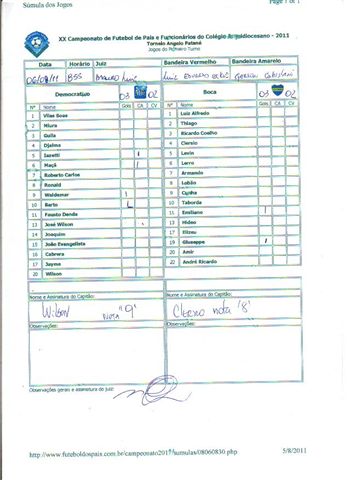 Súmula dos Jogos
Page 1 of 1
XX Campeonato de Futebol de Pais e Funcionários do Colégio Arquidiocesano - 2011
Torneio Angelo Patané
Jogos do Primeiro Turno
Data Horário Juiz Bandeira Vermelho Bandeira Amarelo
Democrativo 03 02 Boca 03 02
Nº Nome Gols CA CV Nº Nome Gols CA CV
1 Vilas Boas 1 Luiz Alfredo
2 Miura 2 Thiago
3 Guila 3 Ricardo Coelho
4 Djalma 4 Clersio
5 Iazetti 5 Levin
6 Maçã 6 Lerro
7 Roberto Carlos 7 Armando
8 Ronald 8 Lobão
9 Waldemar 9 Cunha
10 Berto 10 Taborda
11 Fausto Denda 11 Emiliano
13 José Wilson 13 Hideo
14 Joaquim 17 Elizeu
15 João Evangelista 19 Giuseppe
16 Cabrera 20 Amir
17 Jayme 22 André Ricardo
20 Wilson
Nome e Assinatura do Capitão: Nome e Assinatura do Capitão:
Wilson nota "9" Clersio nota '8'
Observações: Observações:
Observações gerais e assinatura do juiz:
http://www.futeboldospais.com.br/campeonato2017/sumulas/08060830.php
5/8/2011